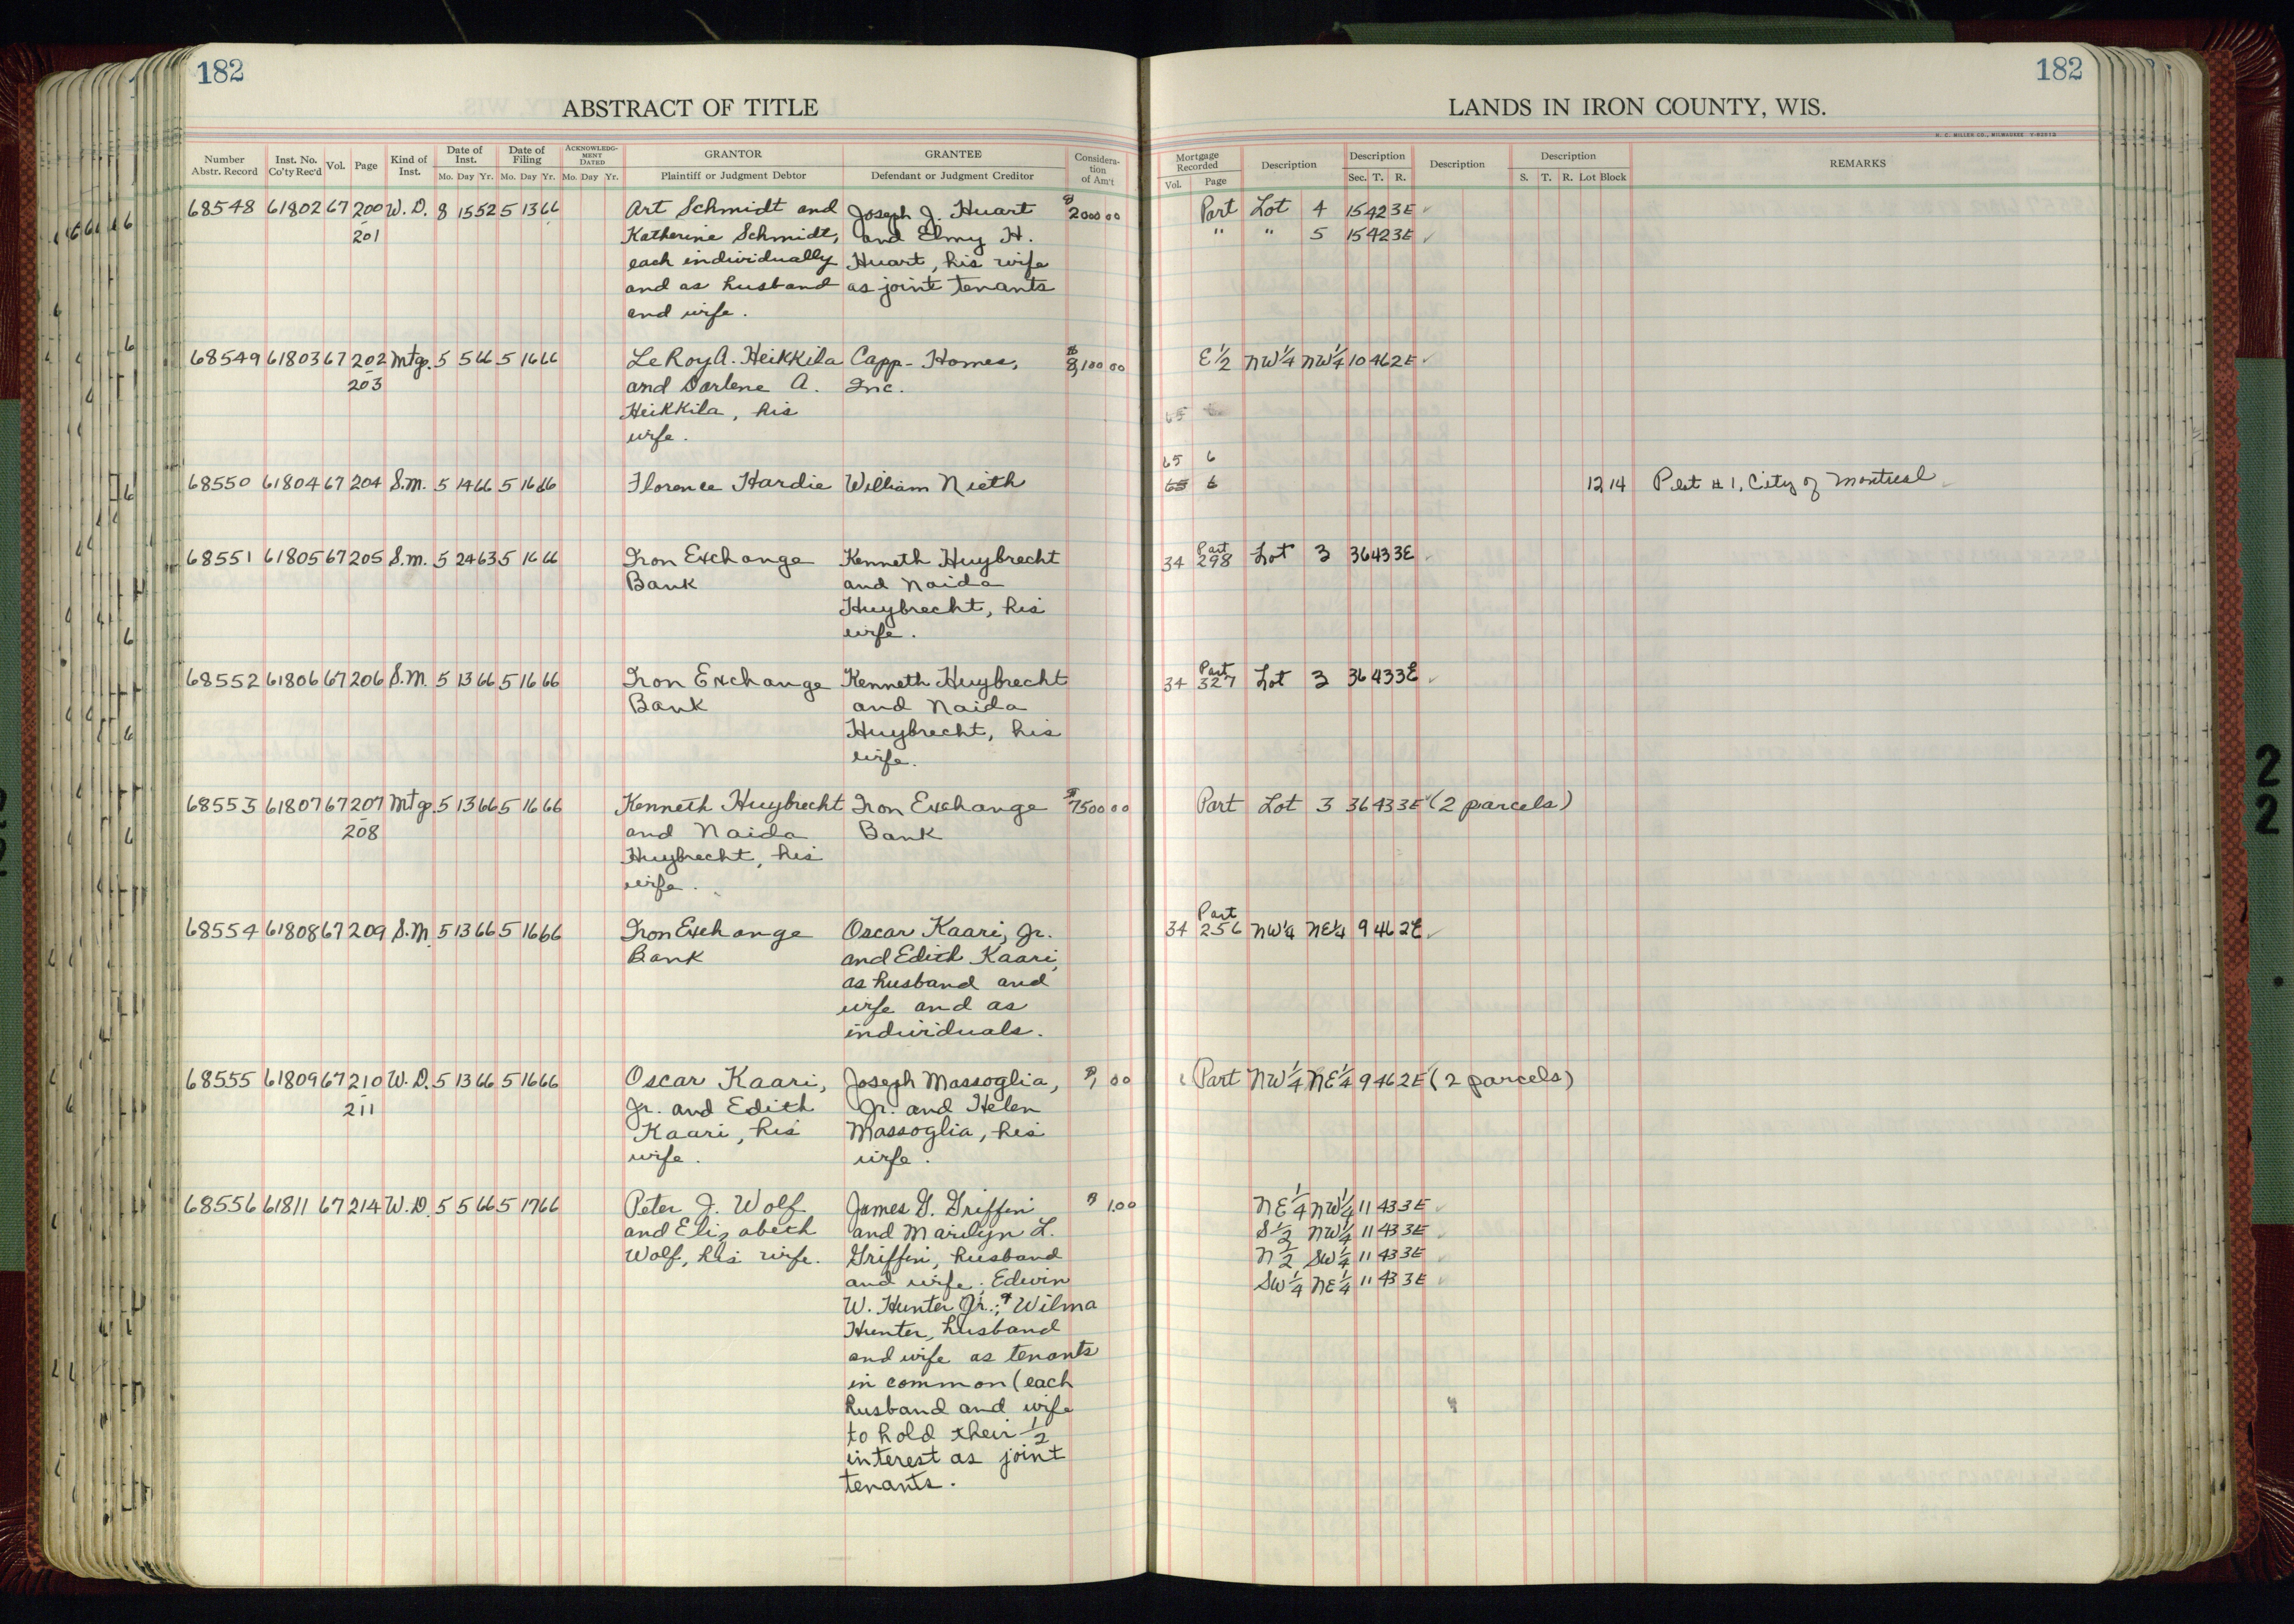 182
ABSTRACT OF TITLE
Number Abstr. Record Inst. No. Co'ty Rec'd Vol. Page Kind of Inst. Date of Inst. Mo. Day Yr. Date of Filing Mo. Day Yr. ACKNOWLEDGMENT DATED Mo. Day Yr. GRANTOR Plaintiff or Judgment Debtor GRANTEE Defendant or Judgment Creditor Consideration of Am't
68548 61802 67 200 W.D. 8 15 52 5 13 66 Art Schmidt and Joseph J. Huart $2000 00
201 Katherine Schmidt, and Elmy H.
each individually Huart, his wife
and as husband as joint tenants
and wife.
68549 61803 67 202 Mtg. 5 5 66 5 16 66 Le Roy A. Heikkila Capp-Homes, $8,100 00
203 and Darlene A. Inc.
Heikkila, his
wife.
68550 61804 67 204 S.M. 5 14 66 5 16 66 Florence Hardie William Nieth
68551 61805 67 205 S.M. 5 24 63 5 16 66 Iron Exchange Kenneth Huybrecht
Bank and Naida
Huybrecht, his
wife.
68552 61806 67 206 S.M. 5 13 66 5 16 66 Iron Exchange Kenneth Huybrecht
Bank and Naida
Huybrecht, his
wife.
68553 61807 67 207 Mtg. 5 13 66 5 16 66 Kenneth Huybrecht Iron Exchange $7500 00
208 and Naida Bank
Huybrecht, his
wife.
68554 61808 67 209 S.M. 5 13 66 5 16 66 Iron Exchange Oscar Kaari, Jr.
Bank and Edith Kaari,
as husband and
wife and as
individuals.
68555 61809 67 210 W.D. 5 13 66 5 16 66 Oscar Kaari, Joseph Massoglia, $1 00
211 Jr. and Edith Jr. and Helen
Kaari, his Massoglia, his
wife. wife.
68556 61811 67 214 W.D. 5 5 66 5 17 66 Peter J. Wolf James G. Griffin $1.00
and Elizabeth and Marilyn L.
Wolf, his wife. Griffin, husband
and wife; Edwin
W. Hunter Jr.; & Wilma
Hunter, husband
and wife as tenants
in common (each
husband and wife
to hold their 1/2
interest as joint
tenants.
182
LANDS IN IRON COUNTY, WIS.
H. C. MILLER CO., MILWAUKEE
Mortgage Recorded Vol. Page Description Description Sec. T. R. Description Description S. T. R. Lot Block REMARKS
Part Lot 4 15 42 3E
" " 5 15 42 3E
E 1/2 NW 1/4 NW 1/4 10 46 2E
65
65 6
65 6 12 14 Plat #1, City of Montreal
Part
34 298 Lot 3 36 43 3E
Part
34 327 Lot 3 36 43 3E
Part Lot 3 36 43 3E (2 parcels)
Part
34 256 NW 1/4 NE 1/4 9 46 2E
Part NW 1/4 NE 1/4 9 46 2E (2 parcels)
NE 1/4 NW 1/4 11 43 3E
S 1/2 NW 1/4 11 43 3E
N 1/2 SW 1/4 11 43 3E
SW 1/4 NE 1/4 11 43 3E
2
2